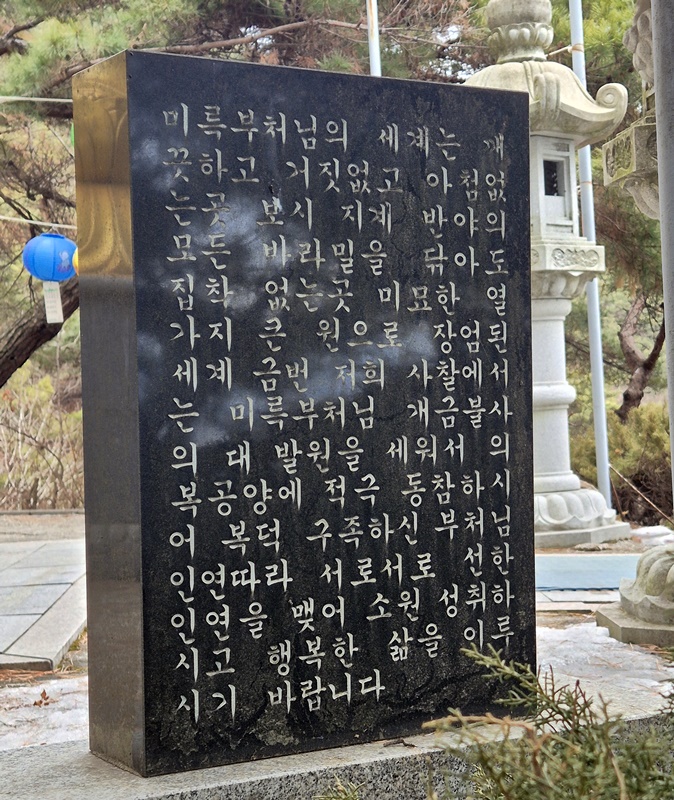 미륵부처님의 세계는 깨
끗하고 거짓없고 아첨없
는곳 보시 지계 반야의
모든 바라밀을 닦아 도
집착 없는곳 미묘한 열
가지 큰 원으로 장엄된
세계 금번 저희 사찰에서
는 미륵부처님 개금불사
의 대 발원을 세워서 의
복공양에 적극 동참하시
어 복덕 구족하신 부처님
인연따라 서로서로 선한
인연을 맺어 소원 성취하
시고 행복한 삶을 이루
시기 바랍니다